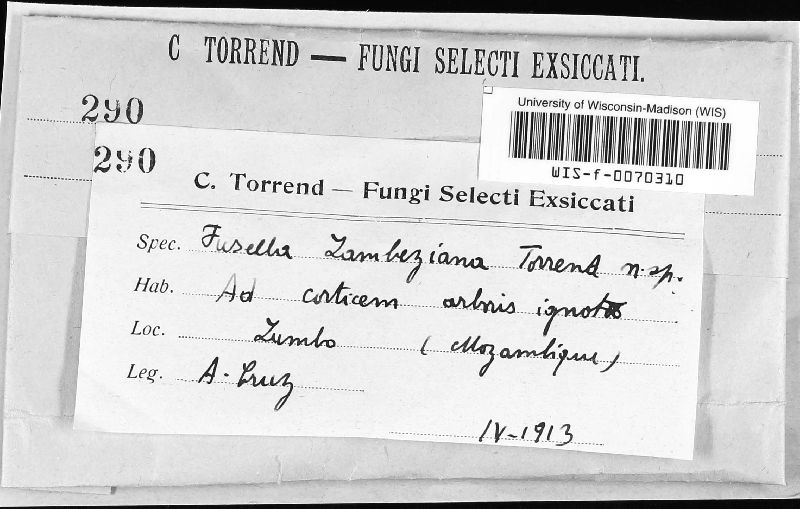 C TORREND — FUNGI SELECTI EXSICCATI.
290
University of Wisconsin-Madison (WIS)
WIS-f-0070310
290
C. Torrend — Fungi Selecti Exsiccati
Spec. Fusella Zambeziana Torrend n. sp.
Hab. Ad corticem arboris ignotæ
Loc. Zumbo (Mozambique)
Leg. A. Cruz
IV-1913